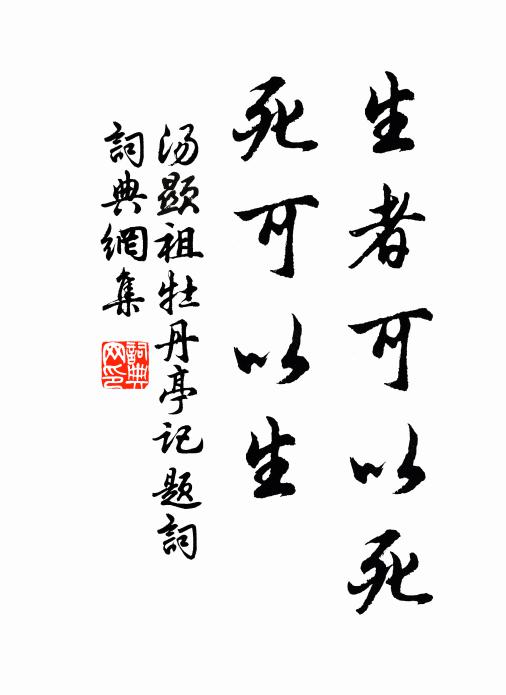 生者可以死
死可以生
汤顯祖牡丹亭記题詞
詞典網集
詞典网印